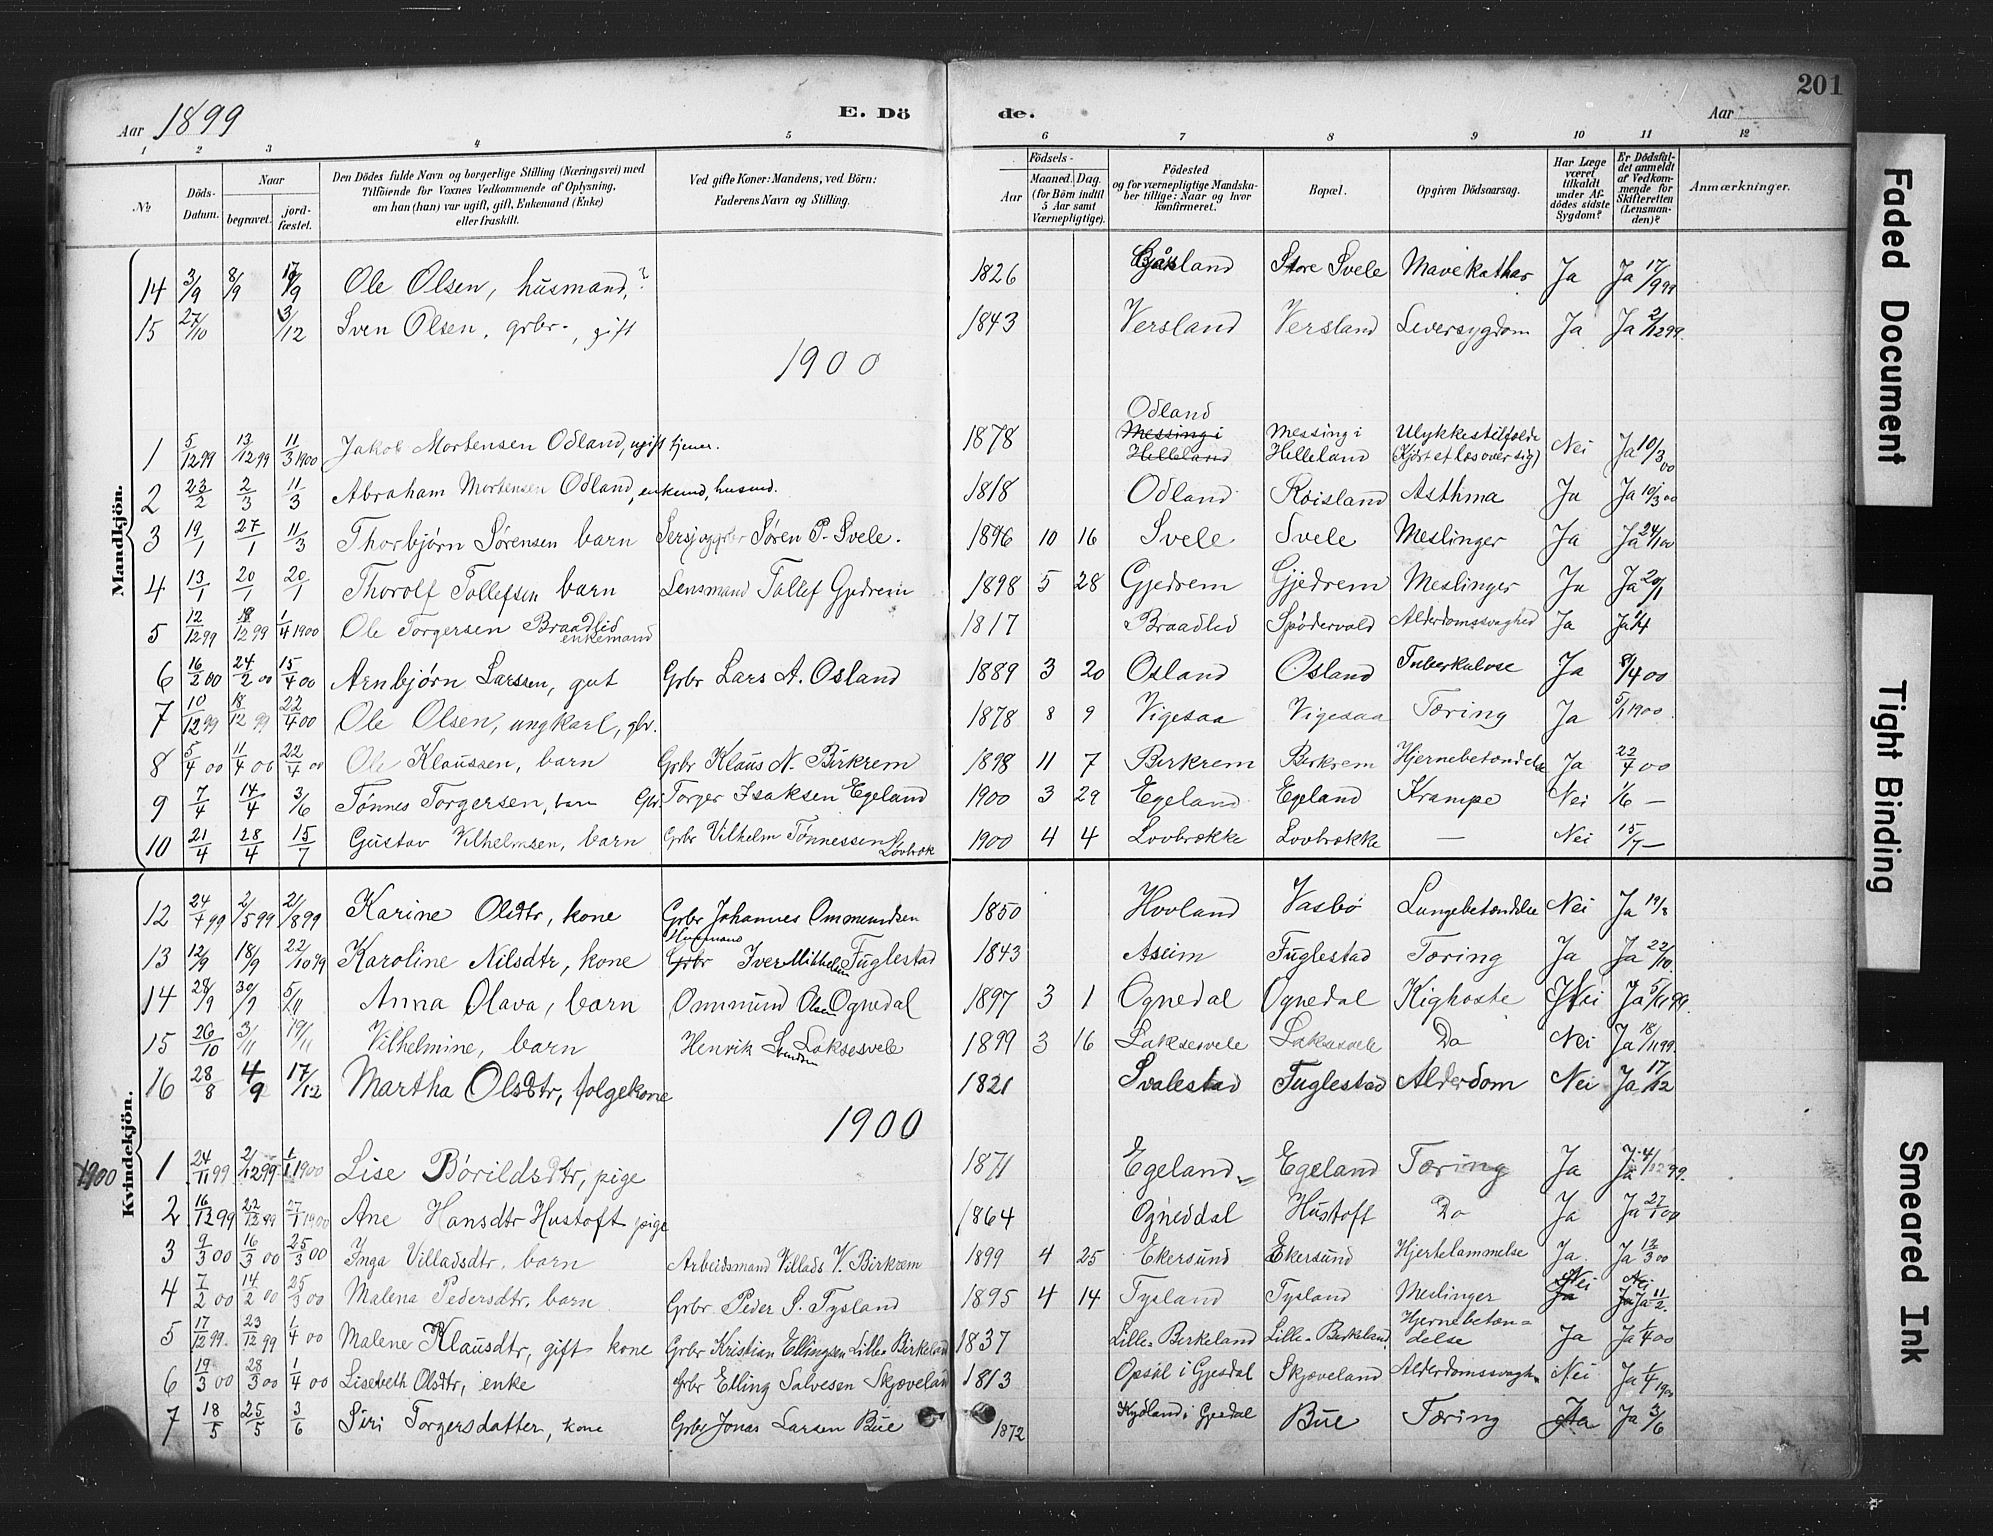 Aar 1899
E. Dö
de.
Aar
201
1 2 3 4 5 6 7 8 9 10 11 12
No
Döds-Datum.
Naar
begravet.
jord-fæstet.
Den Dödes fulde Navn og borgerlige Stilling (Næringsvei) med
Tilföiende for Voxnes Vedkommende af Oplysning,
om han (hun) var ugift, gift, Enkemand (Enke)
eller fraskilt.
Ved gifte Koner: Mandens, ved Börn:
Faderens Navn og Stilling.
Födsels-
Aar
Maaned. Dag.
(for Börn indtil
5 Aar samt
Værnepligtige).
Födested
og for værnepligtige Mandska-
ber tillige: Naar og hvor
konfirmeret.
Bopæl.
Opgiven Dödsaarsag.
Har Læge
været
tilkaldt
under Af-
dödes sidste
Sygdom?
Er Dödsfal-
det anmeldt
af Vedkom-
mende for
Skifteretten
(Lensman-
den)?
Anmærkninger.
Mandkjön.
14 3/9 8/9 17/9 Ole Olsen, husmand, ? 1826 Store Svele Mavekathar Ja Ja 17/9 99
15 27/10 3/12 Sven Olsen, grbr., gift 1843 Versland Versland Leversygdom Ja Ja 2/12 99.
1900
1 5/12 99 13/12 99 11/3 1900 Jakob Mortensen Odland, ugift tjener. 1878 Odland Messing i Helleland Messing i Helleland Ulykkestilfælde (Kjørt et læs over sig) Nei Ja 10/3 00
2 23/2 2/3 11/3 Abraham Mortensen Odland, enkemd, husmd. 1818 Odland Røisland Asthma Ja Ja 10/3 00
3 19/1 27/1 11/3 Thorbjørn Sørensen barn Søren P. Svele. 1896 10 16 Svele Svele Meslinger Ja Ja 24/1 00
4 13/1 20/1 20/1 Thorolf Tollefsen barn Lensmand Tollef Gjedrem 1898 5 28 Gjedrem Gjedrem Meslinger Ja Ja 20/1
5 12/12 99 18/12 99 1/4 1900 Ole Torgersen Braadlid enkemand 1817 Braadlid Spødervold Alderdomssvaghed Ja Ja 1/4
6 16/2 00 24/2 00 15/4 00 Arnbjørn Larssen, gut Grbr Lars A. Osland 1889 3 20 Osland Osland Tuberkulose Ja 8/4 00
7 10/12 99 18/12 99 22/4 00 Ole Olsen, ungkarl, gbr. 1878 8 9 Vigesaa Vigesaa Tæring Ja 5/1 1900
8 5/4 00 11/4 00 22/4 00 Ole Klaussen, barn Grbr Klaus N. Birkrem 1898 11 7 Birkrem Birkrem Hjernebetændelse Ja 22/4 00
9 7/4 14/4 3/6 Tønnes Torgersen, barn Gbr. Torger Isaksen Egeland 1900 3 29 Egeland Egeland Krampe Nei 1/6 —
10 21/4 28/4 15/7 Gustav Vilhelmsen, barn Grbr Vilhelm Tønnessen Lovbræk 1900 4 4 Lovbrække Lovbrække — Nei 15/7 —
Kvindekjön.
12 24/4 99 2/5 99 2/8 99 Karine Olsdtr, kone Grbr Johannes Ommundsen 1850 Hovland Vasbø Lungebetændelse Nei Ja
13 12/9 18/9 22/10 99 Karoline Nilsdtr, kone Husmand Grbr Iver Mikkelsen Fuglestad 1843 Aseim Fuglestad Tæring Ja Ja 22/10.
14 28/9 30/9 5/11 Anna Olava, barn Ommund Olsen Ognedal 1897 3 1 Ognedal Ognedal Kighoste Nei Ja 5/11 99.
15 26/10 3/11 19/11 Vilhelmine, barn Henrik Svendsen Laksesvele 1899 3 16 Laksesvele Laksesvele Do Nei Ja 18/11 99.
16 28/8 4/9 17/12 Martha Olsdtr, folgekone 1821 Svalestad Fuglestad Alderdom Nei Ja 17/12
1900
1900 1 24/11 99 2/12 99 1/1 1900 Lise Børildsdtr, pige 1871 Egeland Egeland Tæring Ja Ja 4/12 99.
2 16/12 99 22/12 99 27/1 1900 Ane Hansdtr Hustoft pige 1864 Ogneddal Hustoft Do Ja Ja 27/1 00
3 9/3 00 16/3 00 25/3 00 Inga Villadsdtr. barn Arbeidsmand Villads V. Birkrem 1899 4 25 Ekersund Ekersund Hjertelammelse Ja. Ja 13/3 00
4 7/2 00 14/2 00 25/3 00 Malena Pedersdtr, barn Grbr Peder S. Tysland 1895 4 14 Tysland Tysland Meslinger Nei Ja Nei Ja Ja 11/2.
5 17/12 99. 23/12 99 1/4 00 Malene Klausdtr, gift kone Grbr Kristian Ellingsen Lille-Birkeland 1837 Lille-Birkeland Lille-Birkeland Hjernebetændelse Ja Ja 1/4 00
6 19/3 00 28/3 00 1/4 00 Lisebeth Olsdtr, enke Grbr Elling Salvesen Skjæveland 1813 Opsal i Gjesdal Skjæveland Alderdomssvagh. Nei Ja 1/4 1900
7 18/5 25/5 3/6 Siri Torgersdatter, kone Grbr Jonas Larsen Bue 1872 Kydland i Gjesdal Bue Tæring Ja Ja 3/6
Faded Document
Tight Binding
Smeared Ink